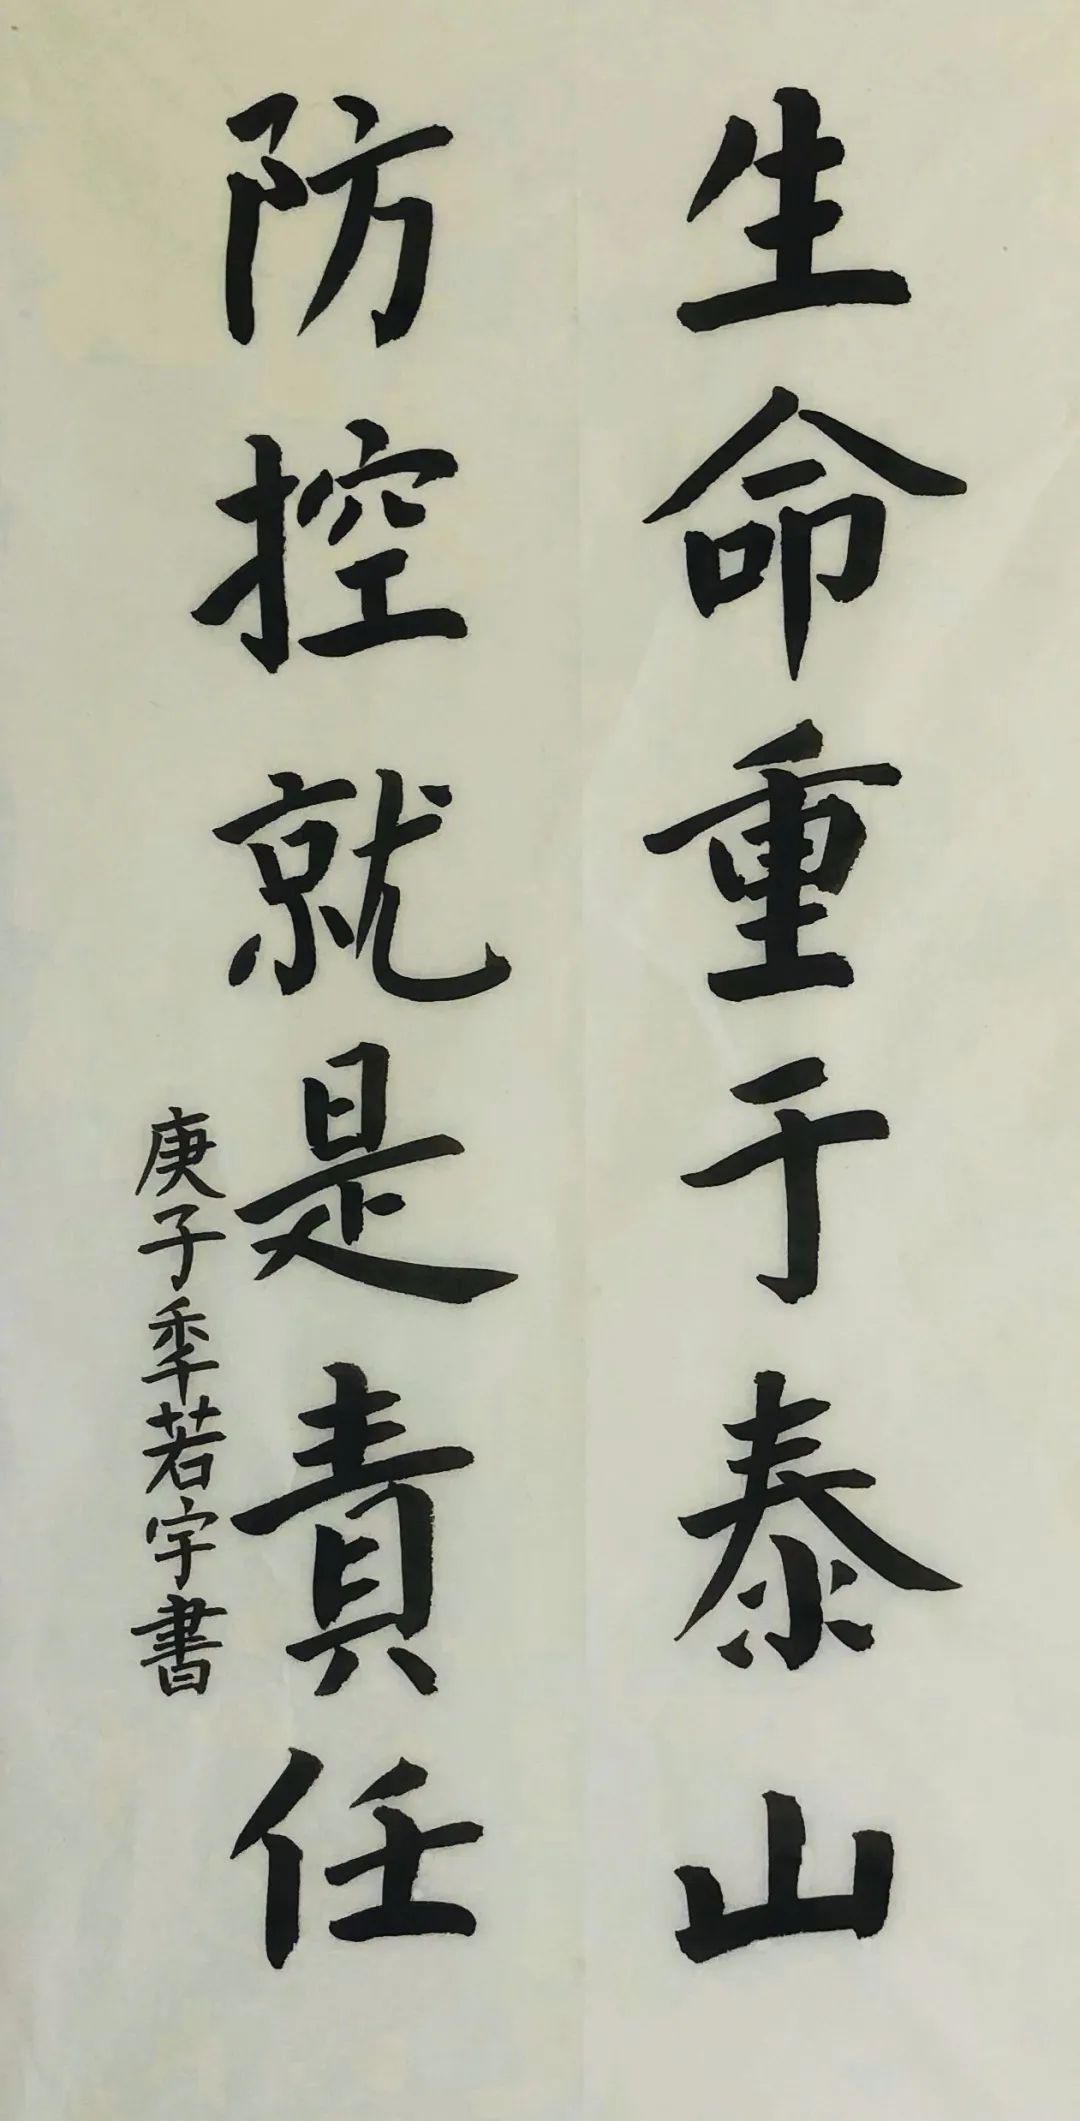 生命重于泰山
防控就是責任
庚子季若宇書